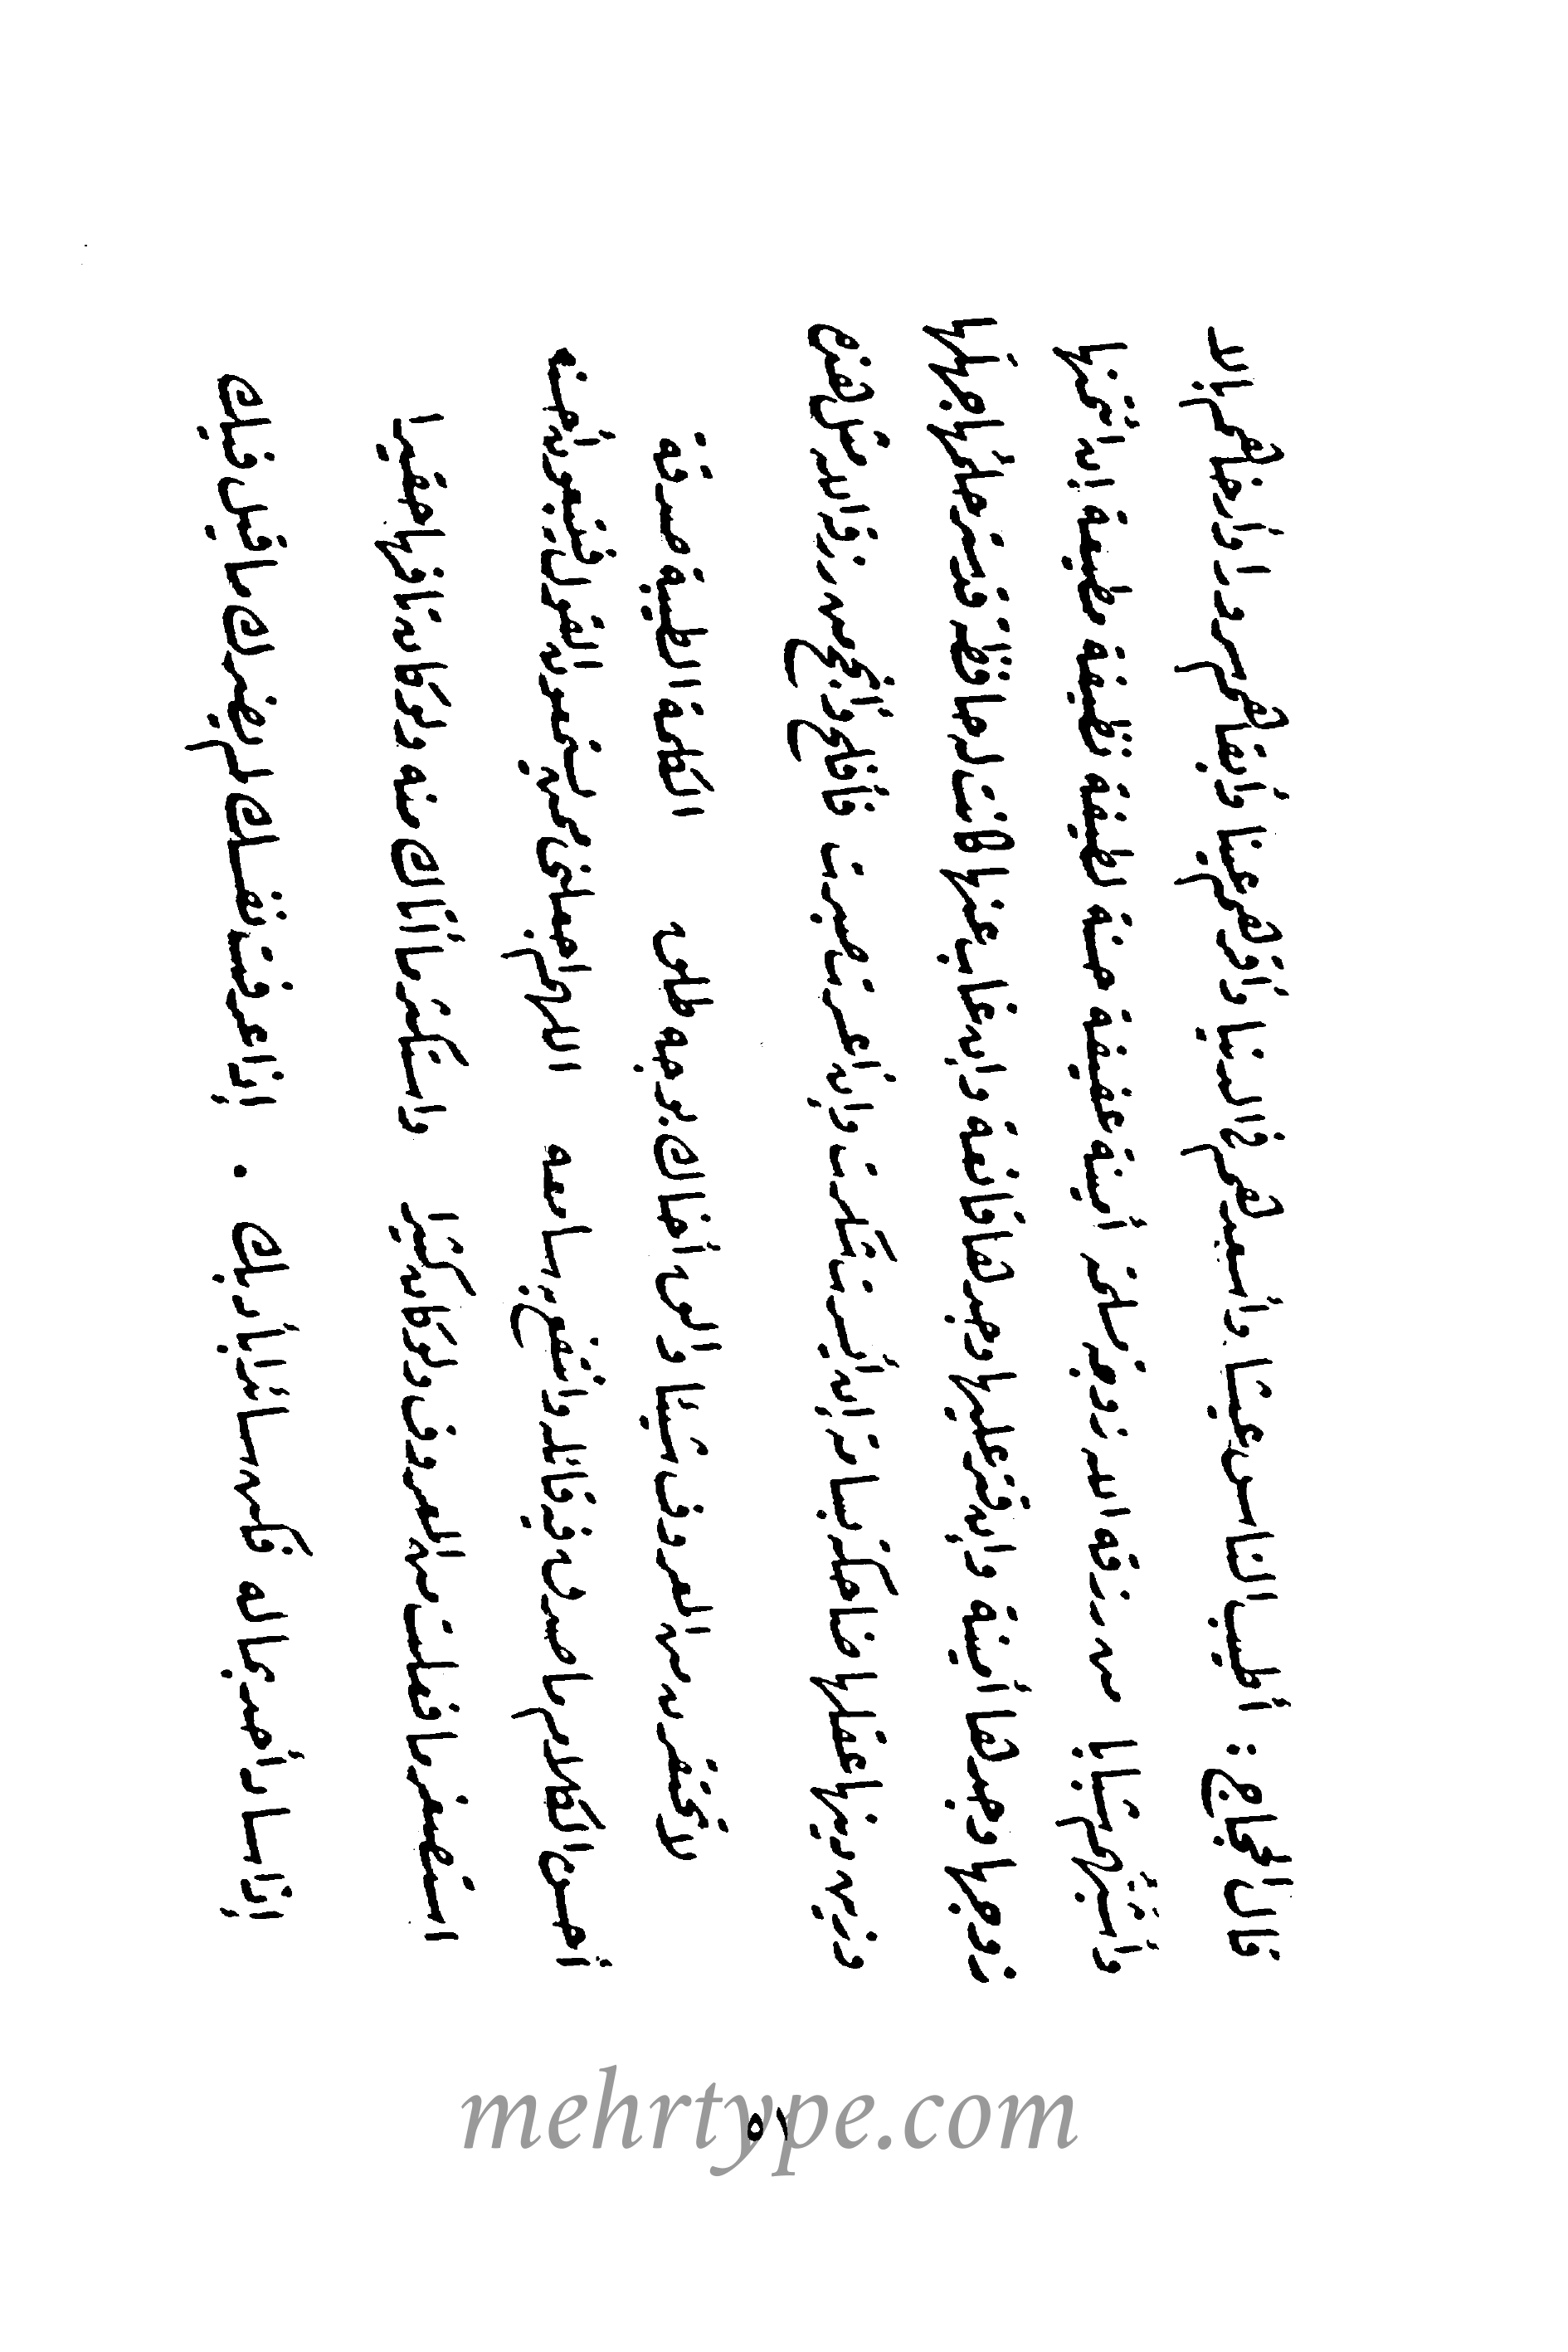 قال الحجاج : أطيب الناس عيشا وأسعدهم في الدنيا وأقرهم عينا وأبقاهم سرورا وأرخاهم بالا
وأشبهم شبابا من رزقه الله زوجة مسلمة أمينة عفيفة حسنة لطيفة نظيفة مطيعة إن ائتمنها
زوجها وجدها أمينة وإن قتر عليها وجدها قانعة وإن غاب عنها كانت له حافظة قد ستر حلمها جهلها
وزين دينها عقلها ضاحكة بسامة إن أيسرت شكرت وإن أعسرت صبرت فأفلح وأنجح من رزق الله مثل هذه
لا تحقرن من المعروف شيئا والق أخاك بوجه طلق الكلمة الطيبة صدقة
أحسن الكلام ما صدق فيه قائله وانتفع به سامعه اللهم اجعلني ممن يستمعون القول فيتبعون أحسنه
استصغر ما فعلت من المعروف ولو كان كثيرا واستكثر ما أتاك منه ولو كان تافها حقيرا
إذا سار أحد بماله فكن سائرا بأدبك . إذا عرفت نفسك لم يضرك ما قيل فيك
٥١
mehrtype.com